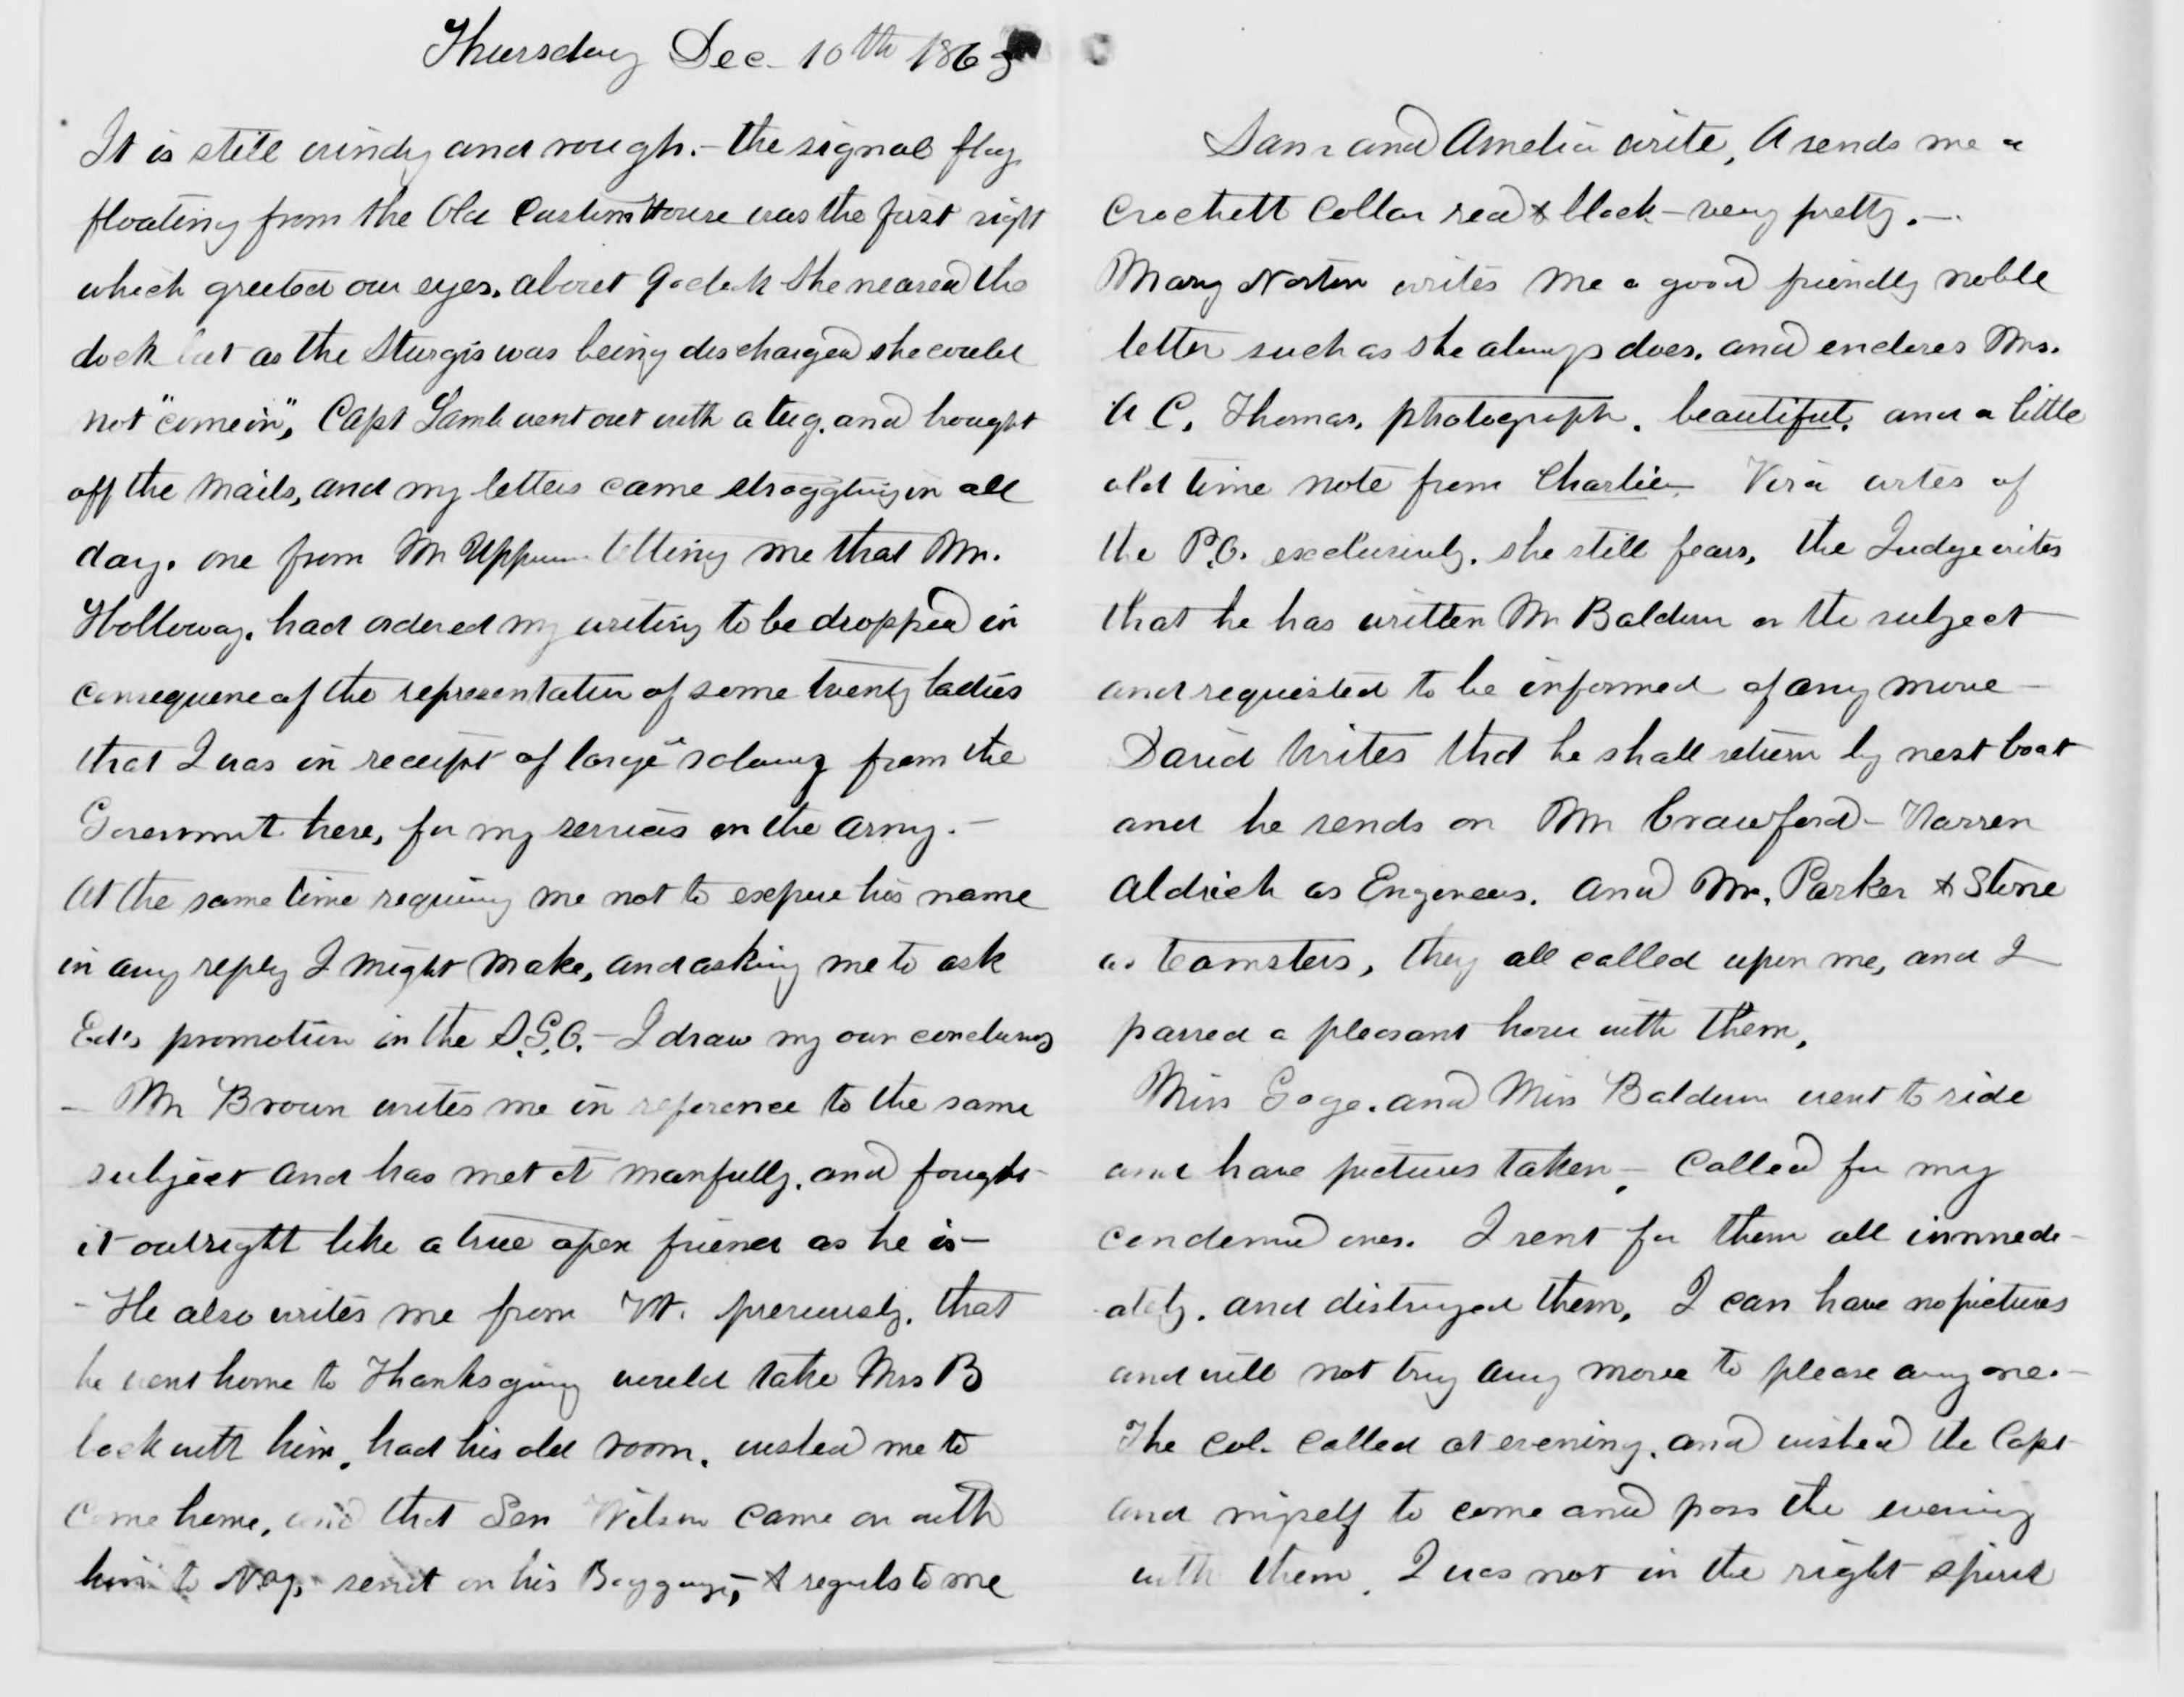 Thursday Dec. 10th 1863
It is still windy and rough. - the signal flag
floating from the Old Custom House was the first sight
which greeted our eyes. about 9 oclock she neared the
dock but as the Sturgis was being discharged she could
not "come in", Capt Lamb went out with a tug. and brought
off the mails, and my letters came straggling in all
day. one from Mr Upperman telling me that Mr.
Holloway. had ordered my writing to be dropped in
consequence of the representation of some twenty ladies
that I was in receipt of large salary from the
Government here, for my services in the army. -
At the same time requiring me not to expose his name
in any reply I might make, and asking me to ask
Ed's promotion in the S.G.O. - I draw my own conclusions
- Mr Brown writes me in reference to the same
subject and has met it manfully. and fought
it outright like a true open friend as he is -
- He also writes me from Vt. previously. that
he went home to Thanksgiving would take Mrs B
back with him. had his old room. wished me to
come home, and that Sen Wilson came on with
him to N.Y. sent on his Baggage, & regards to me
Sam and Amelia write, A sends me a
Crochett Collar red & black - very pretty. -
Mary Norton writes me a good friendly noble
letter such as she always does. and encloses Mrs.
A C. Thomas, photograph. beautiful. and a little
old time note from Charlie. Vira writes of
the P.O. exclusively. she still fears, the Judge writes
that he has written Mr Baldwin on the subject
and requested to be informed of any move -
David writes that he shall return by next boat
and he sends on Mr Crawford - Warren
Aldrich as Engineers. and Mr. Parker & Stone
as teamsters, they all called upon me, and I
passed a pleasant hour with them.
Miss Gage. and Miss Baldwin went to ride
and have pictures taken - Called for my
condemned ones. I sent for them all immedi-
ately. and distroyed them, I can have no pictures
and will not try any more to please any one. -
The Col. called at evening. and wished the Capt
and myself to come and pass the evening
with them. I was not in the right spirit